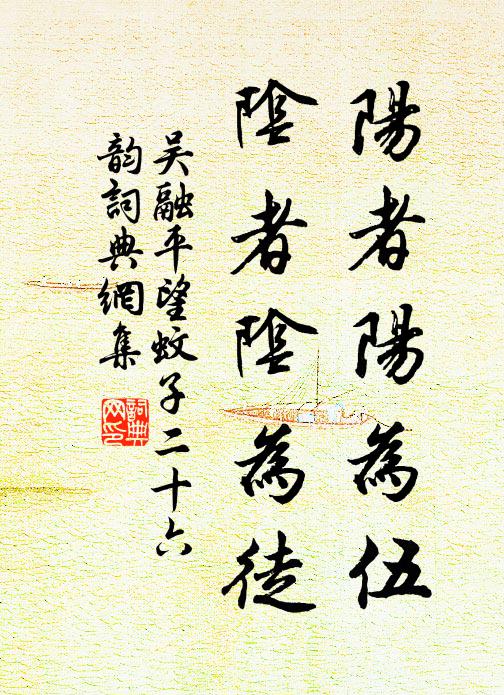 陽者陽為伍
陰者陰為徒
吴融平望蚊子二十六
韵詞典網集
詞典
网印